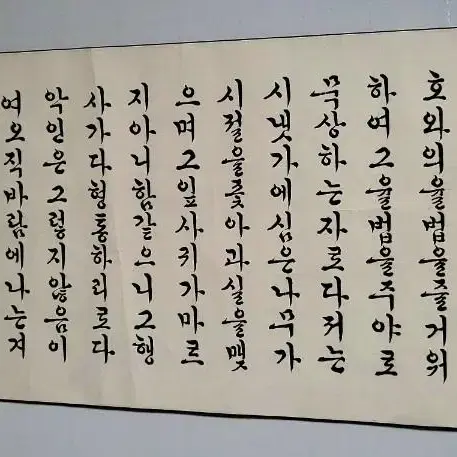 호와의율법을즐거워
하여그율법을주야로
묵상하는자로다저는
시냇가에심은나무가
시절을좇아과실을맺
으며그잎사귀가마르
지아니함같으니그행
사가다형통하리로다
악인은그렇지않음이
여오직바람에나는겨